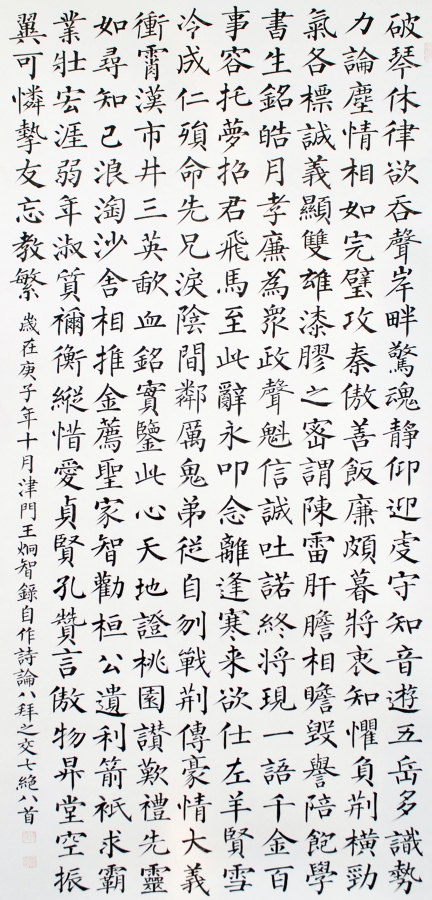 破琴休律欲吞聲岸畔驚魂靜仰迎虔守知音遊五岳多識勢
力論塵情相如完璧攻秦傲善飯廉頗暮將衷知懼負荊橫勁
氣各標誠義顯雙雄漆膠之密謂陳雷肝膽相瞻毀譽陪飽學
書生銘皓月孝廉為眾政聲魁信誠吐諾終將現一語千金百
事容托夢招君飛馬至此辭永叩念離逢寒来欲仕左羊賢雪
冷成仁殞命先兄淚陰間鄰厲鬼弟從自刎戰荊傳豪情大義
衝霄漢市井三英歃血銘實鑒此心天地證桃園讚歎禮先靈
如尋知己浪淘沙舍相推金薦聖家智勸桓公遺利箭祇求霸
業壯宏涯弱年淑質禰衡縱惜愛貞賢孔贊言傲物昇堂空振
翼可憐摯友忘教繁 歲在庚子年十月津門王炯智錄自作詩論八拜之交七絕八首